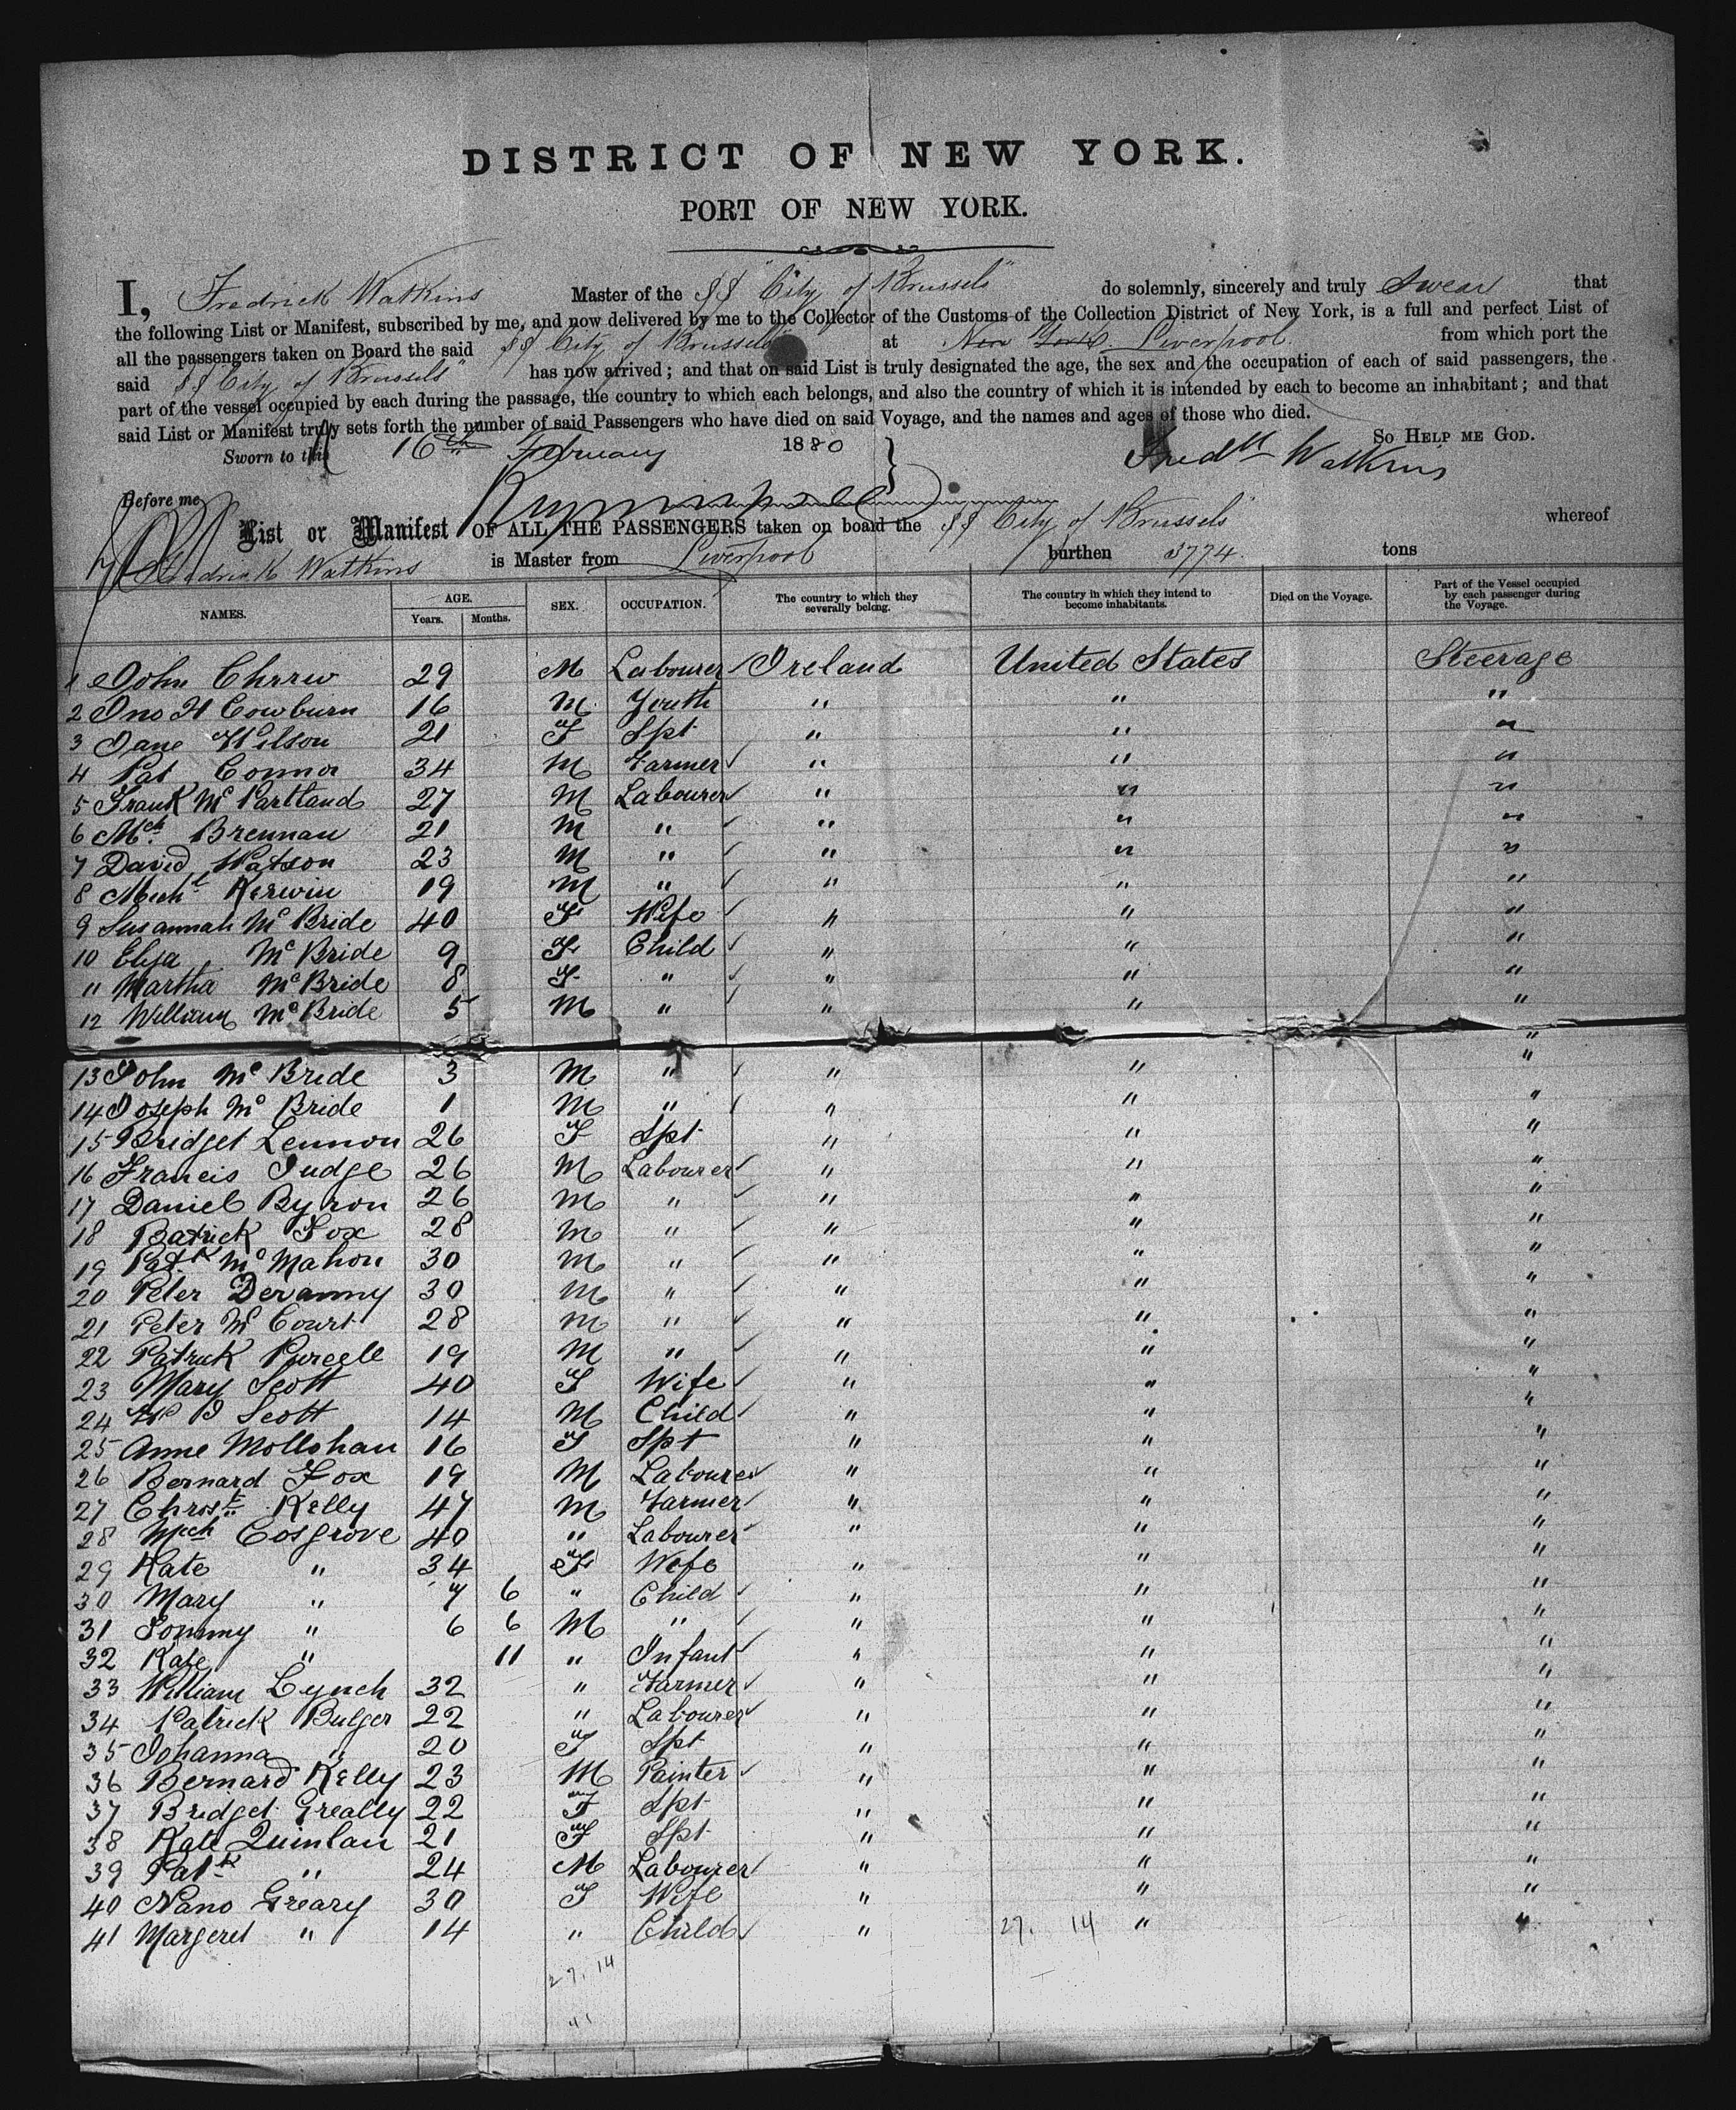 DISTRICT OF NEW YORK.
PORT OF NEW YORK.
I, Fredrick Watkins Master of the SS "City of Brussels" do solemnly, sincerely and truly Swear that
the following List or Manifest, subscribed by me, and now delivered by me to the Collector of the Customs of the Collection District of New York, is a full and perfect List of
all the passengers taken on Board the said SS City of Brussels at New York. Liverpool. from which port the
said SS City of Brussels" has now arrived; and that on said List is truly designated the age, the sex and the occupation of each of said passengers, the
part of the vessel occupied by each during the passage, the country to which each belongs, and also the country of which it is intended by each to become an inhabitant; and that
said List or Manifest truly sets forth the number of said Passengers who have died on said Voyage, and the names and ages of those who died.
So HELP ME GOD.
Sworn to this 16th February 1880 Fredk Watkins
Before me
List or Manifest OF ALL THE PASSENGERS taken on board the SS City of Brussels" whereof
Fredrick Watkins is Master from Liverpool burthen 3774. tons
NAMES. AGE. Years. Months. SEX. OCCUPATION. The country to which they severally belong. The country in which they intend to become inhabitants. Died on the Voyage. Part of the Vessel occupied by each passenger during the Voyage.
1 John 29 M Labourer Ireland United States Steerage
2 Jno H Cowburn 16 M Youth " " "
3 Jane Wilson 21 F Spt " " "
4 Pat Connor 34 M Farmer " " "
5 Frank Mc Partland 27 M Labourer " " "
6 Mch. Brennan 21 M " " " "
7 David Watson 23 M " " " "
8 Michl Kerwin 19 M " " " "
9 Susannah Mc Bride 40 F Wife " " "
10 Eliza Mc Bride 9 F Child " " "
11 Martha Mc Bride 8 F " " " "
12 William Mc Bride 5 M " " " "
13 John Mc Bride 3 M " " " "
14 Joseph Mc Bride 1 M " " " "
15 Bridget Lennon 26 F Spt " " "
16 Francis Judge 26 M Labourer " " "
17 Daniel Byron 26 M " " " "
18 Patrick Fox 28 M " " " "
19 Patk Mc Mahon 30 M " " " "
20 Peter Devanny 30 M " " " "
21 Peter Mc Court 28 M " " " "
22 Patrick Purcell 19 M " " " "
23 Mary Scott 40 F Wife " " "
24 W J Scott 14 M Child " " "
25 Anne Mollohan 16 F Spt " " "
26 Bernard Fox 19 M Labourer " " "
27 Christr Kelly 47 M Farmer " " "
28 Mich Cosgrove 40 " Labourer " " "
29 Kate " 34 F Wife " " "
30 Mary " 7 6 " Child " " "
31 Tommy " 6 6 M " " " "
32 Kate " 11 " Infant " " "
33 William Lynch 32 " Farmer " " "
34 Patrick Bulger 22 " Labourer " " "
35 Johanna " 20 F Spt " " "
36 Bernard Kelly 23 M Painter " " "
37 Bridget Greally 22 F Spt " " "
38 Kate Quinlan 21 F Spt " " "
39 Patk " 24 M Labourer " " "
40 Nano Greary 30 F Wife " " "
41 Margeret " 14 " Child " 27. 14 " "
27. 14
41